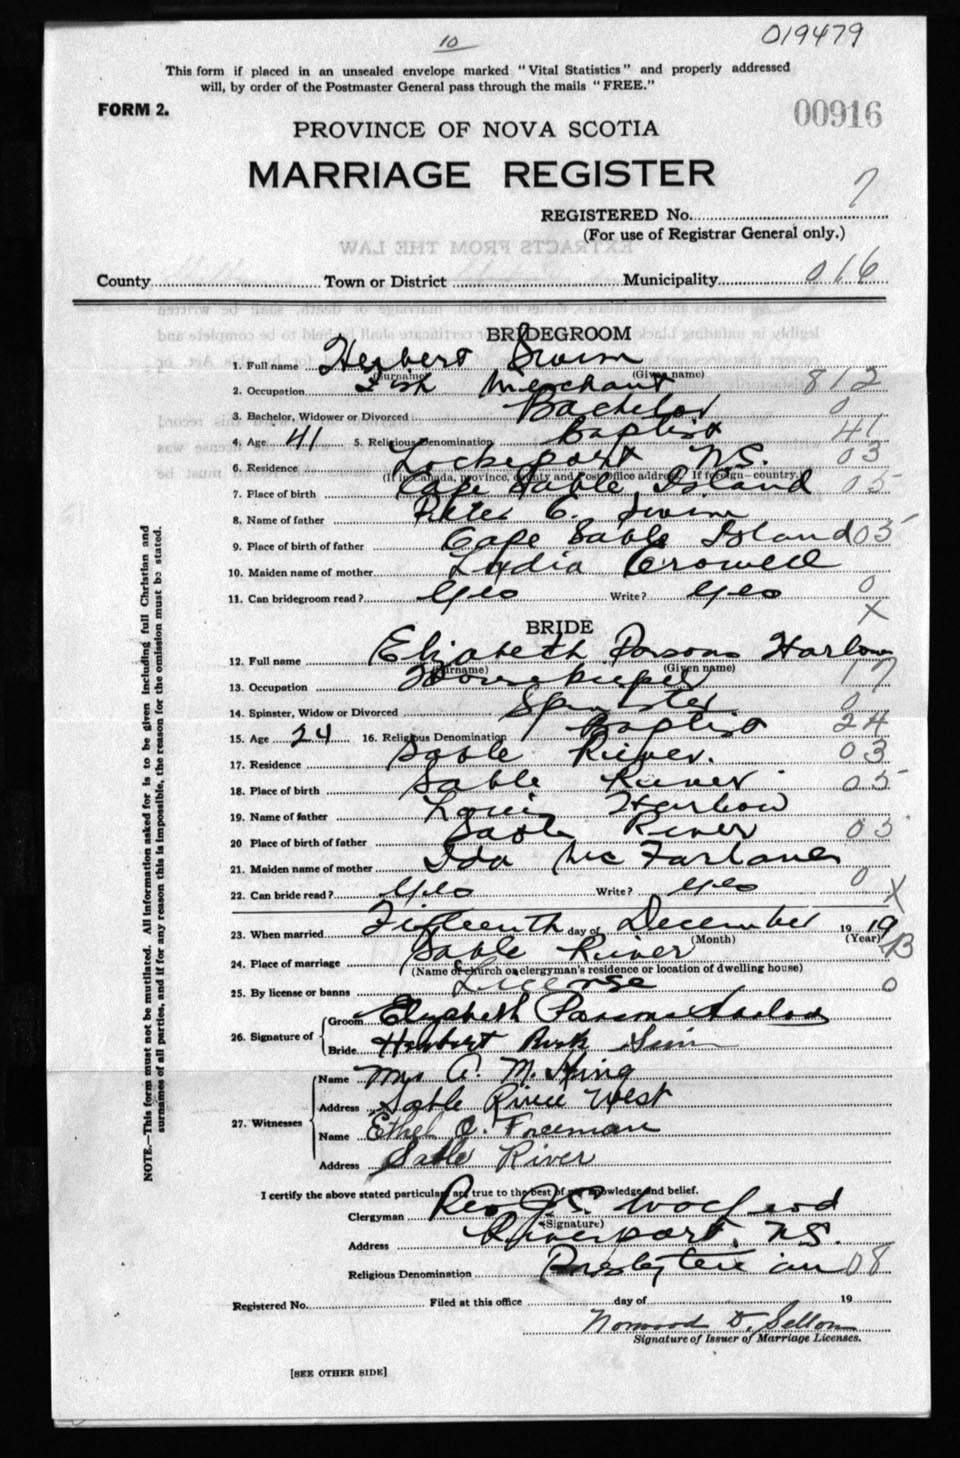 10
019479
This form if placed in an unsealed envelope marked "Vital Statistics" and properly addressed
will, by order of the Postmaster General pass through the mails "FREE."
FORM 2.
00916
PROVINCE OF NOVA SCOTIA
MARRIAGE REGISTER
7
REGISTERED No.
(For use of Registrar General only.)
EXTRACTS FROM THE LAW
County Town or District Municipality 016
BRIDEGROOM
1. Full name Herbert Swim
(Surname) (Given name)
2. Occupation Fish Merchant 812
3. Bachelor, Widower or Divorced Bachelor 0
4. Age 41 5. Religious Denomination Baptist 41
6. Residence Lockeport N.S. 03
(If in Canada, province, county and Post office address. If foreign—country.)
7. Place of birth Cape Sable Island 05
8. Name of father Peter C. Swim
9. Place of birth of father Cape Sable Island 05
10. Maiden name of mother Lydia Crowell
11. Can bridegroom read? Yes Write? Yes 0
X
BRIDE
12. Full name Elizabeth Parsons Harlow
(Surname) (Given name)
13. Occupation Housekeeper 17
14. Spinster, Widow or Divorced Spinster 0
15. Age 24 16. Religious Denomination Baptist 24
17. Residence Sable River. 03
18. Place of birth Sable River 05
19. Name of father Louis Harlow
20 Place of birth of father Sable River 05
21. Maiden name of mother Ida McFarlane
22. Can bride read? Yes Write? Yes 0 X
23. When married Fifteenth day of December 19 19
(Month) (Year) B
24. Place of marriage Sable River
(Name of church or clergyman's residence or location of dwelling house)
25. By license or banns License 0
26. Signature of Groom Elizabeth Parsons Harlow
Bride Herbert Swim
27. Witnesses Name Mrs A. M. King
Address Sable River West
Name Ethel O. Freeman
Address Sable River
I certify the above stated particulars are true to the best of my knowledge and belief.
Clergyman Rev J. S.
(Signature)
Address Riverport, N.S.
Religious Denomination Presbyterian 08
Registered No. Filed at this office day of 19
Norwood D. Sellon
Signature of Issuer of Marriage Licenses.
[SEE OTHER SIDE]
NOTE.—This form must not be mutilated. All information asked for is to be given including full Christian and
surnames of all parties, and if for any reason this is impossible, the reason for the omission must be stated.